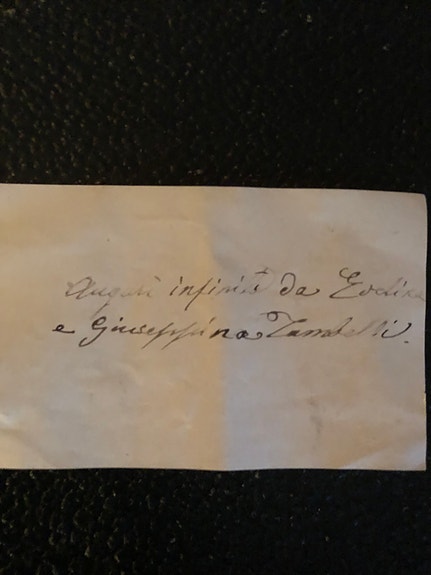 Auguri infiniti da Evelina
e Giuseppina Zambelli.